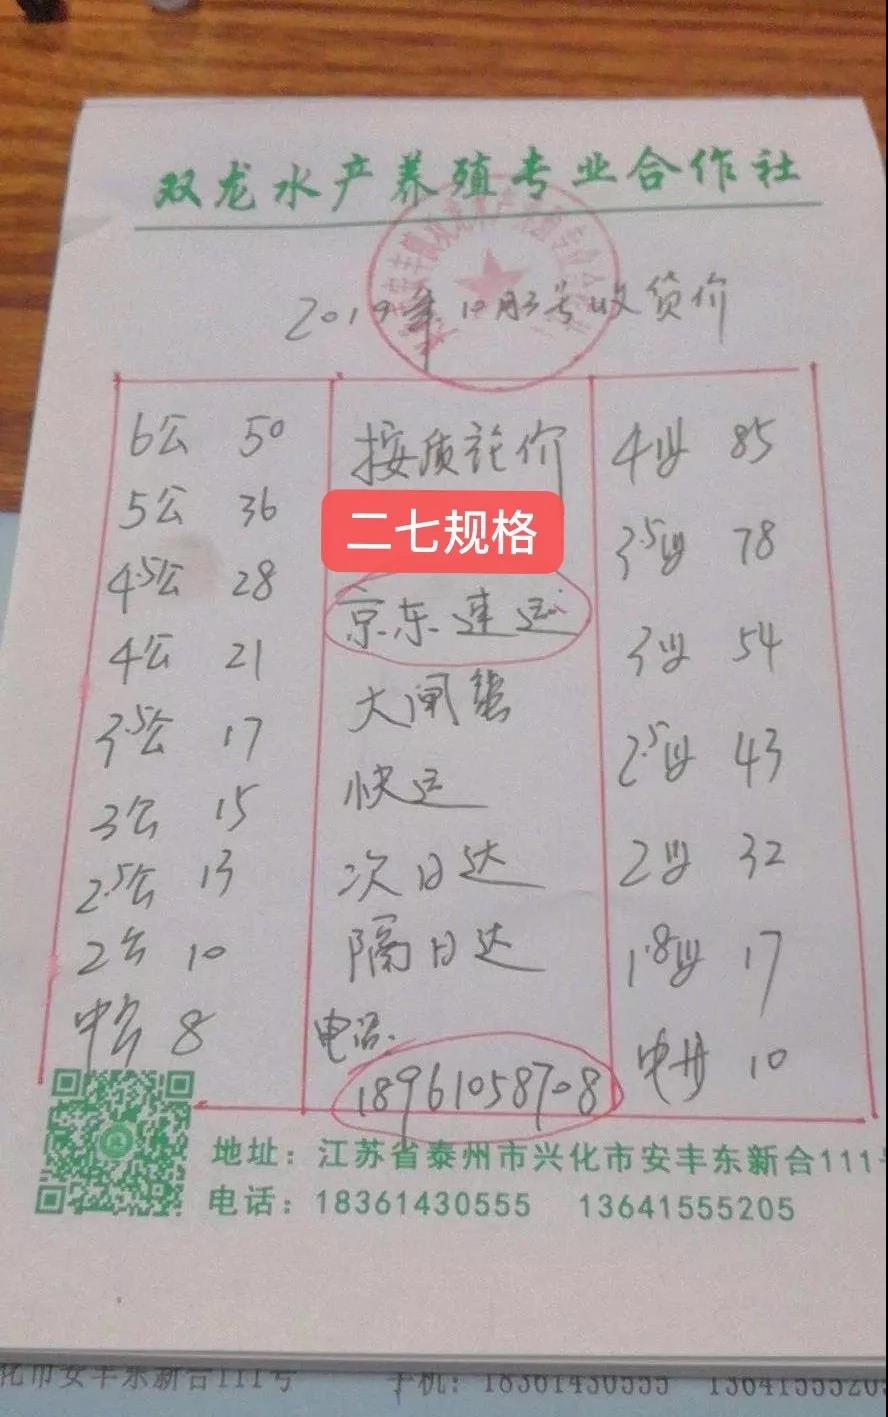 双龙水产养殖专业合作社
2019年10月3号收货价
6公 50
5公 36
4.5公 28
4公 21
3.5公 17
3公 15
2.5公 13
2公 10
中公 8
按质论价
二七规格
京东速运
大闸蟹
快运
次日达
隔日达
电话.
18961058708
4母 85
3.5母 78
3母 54
2.5母 43
2母 32
1.8母 17
中母 10
地址：江苏省泰州市兴化市安丰东新合111号
电话：18361430555 13641555205
化市安丰东新合111号 手机：18361430555 13641555205